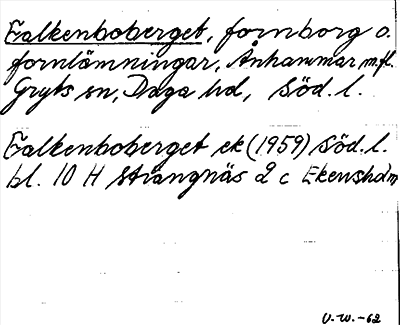 Falkenboberget, fornborg o.
fornlämningar, Ånhammar m.fl.
Gryts sn, Daga hd, Söd. l.
Falkenboberget ek (1959) Söd. l.
bl. 10 H Strängnäs 2 c Ekensholm
V.W.-62